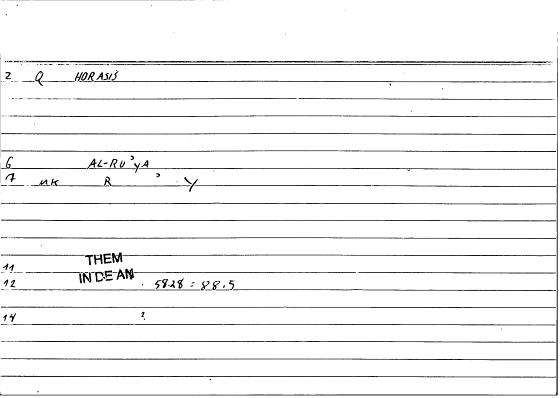 2 Q HORASIS
6 AL-RU'YA
7 MK R ' Y
THEM
11
IN DE AN
12 . 5828 : 88.5
14 2.